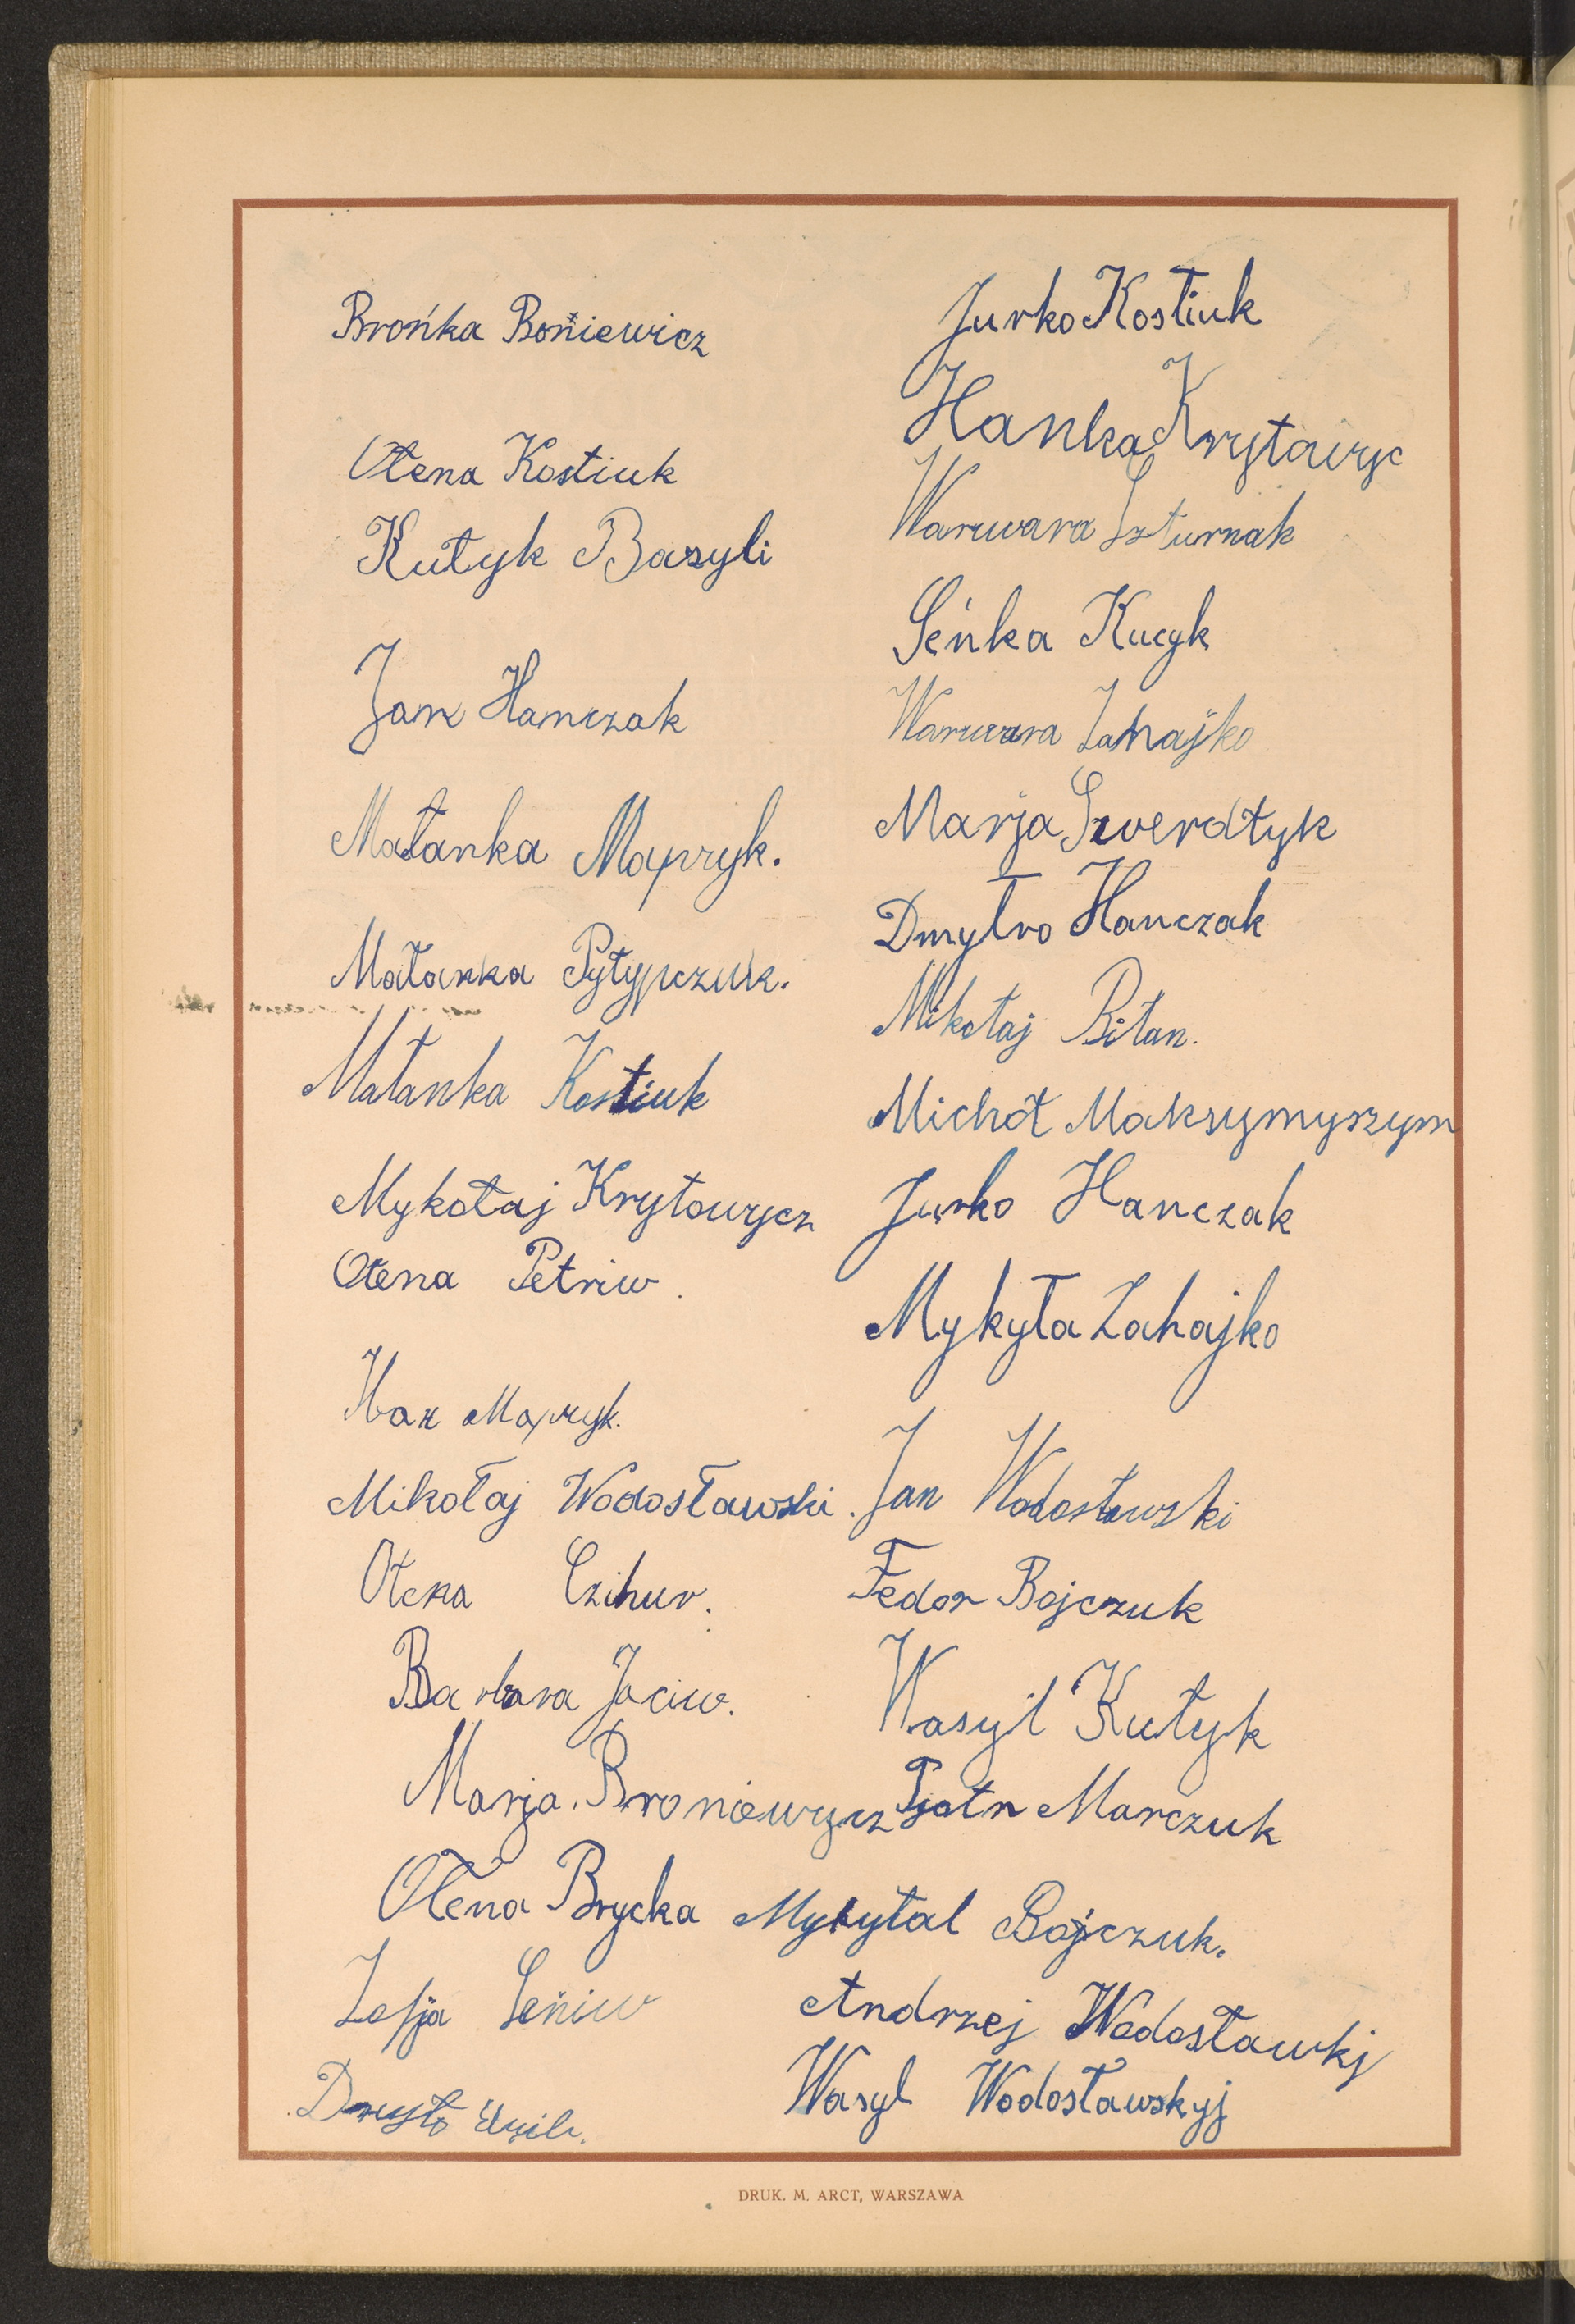 Brońka Boniewicz
Ołena Kostiuk
Kutyk Bazyli
Jan Hanczak
Małanka Mapryk.
Małanka Pyłypczuk.
Małanka Kostiuk
Mykołaj Kryłowycz
Ołena Petriw.
Iwan Mapryk.
Mikołaj Wodosławski.
Ołena Czihur.
Barbara Jaciw.
Marja Broniewycz
Ołena Brycka
Zofja Seńiw
Jurko Kostiuk
Hanka Kryłowyc
Warwara Szturnak
Seńka Kucyk
Warwara Zahajko
Marja Swerdłyk
Dmytro Hanczak
Mikołaj Biłan.
Michał Maksymyszym
Jurko Hanczak
Mykyta Zahajko
Jan Wodosławski
Fedor Bojczuk
Wasyl Kutyk
Piotr Marczuk
Mykytal Bojczuk.
Andrzej Wodosławkj
Wasyl Wodosławskyj
DRUK. M. ARCT, WARSZAWA